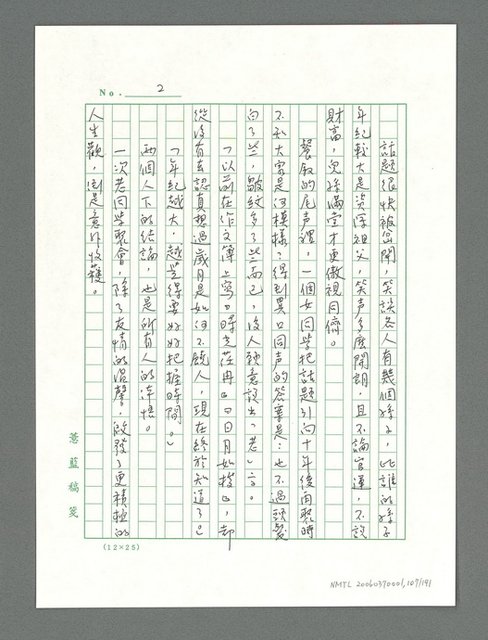 No. 2
話題很快被岔開，笑談各人有幾個孫子，比誰的孫子
年紀較大是資深祖父，笑声多麼開朗，且不論官運，不說
財富，兒孫滿堂才更傲視同儕。
餐敍的尾声裡，一個女同學把話題引向十年後再聚時
不知大家是何模樣？得到異口同声的答案是：也不過頭髮
白了些，皺紋多了些而已，沒人願意說出「老」言。
「以前在作文簿上寫『時光荏冉』『日月如梭』，却
從沒有去認真想過歲月是如何不饒人，現在終於知道了。」
「年紀越大，越覺得要好好把握時間。」
兩個人下的結論，也是所有人的
一次老同學聚會，除了友情的溫馨，啟發了更積極的
人生觀，倒是意外收穫。
薏藍稿箋
(12×25)
NMTL 20060370001, 107/191